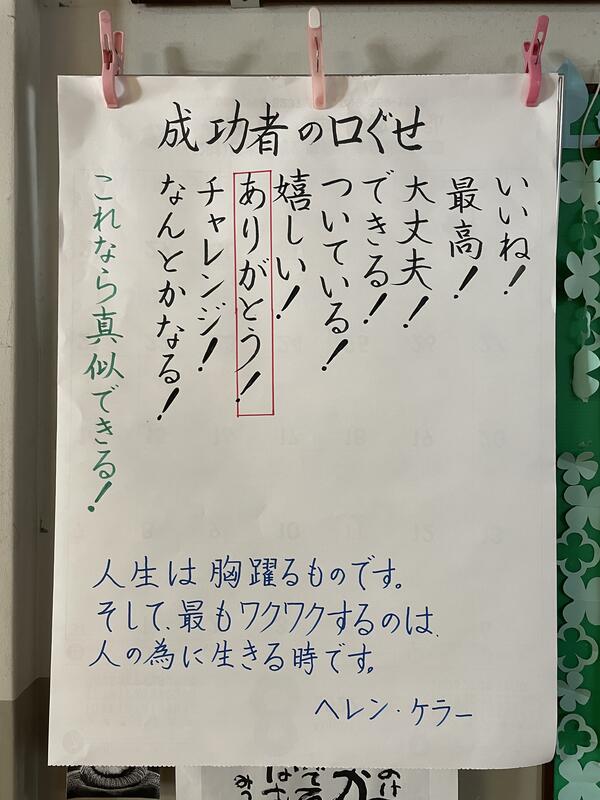 成功者の口ぐせ
いいね！
最高！
大丈夫！
できる！
ついている！
嬉しい！
ありがとう！
チャレンジ！
なんとかなる！
これなら真似できる！
人生は胸躍るものです。
そして、最もワクワクするのは、
人の為に生きる時です。
ヘレン・ケラー